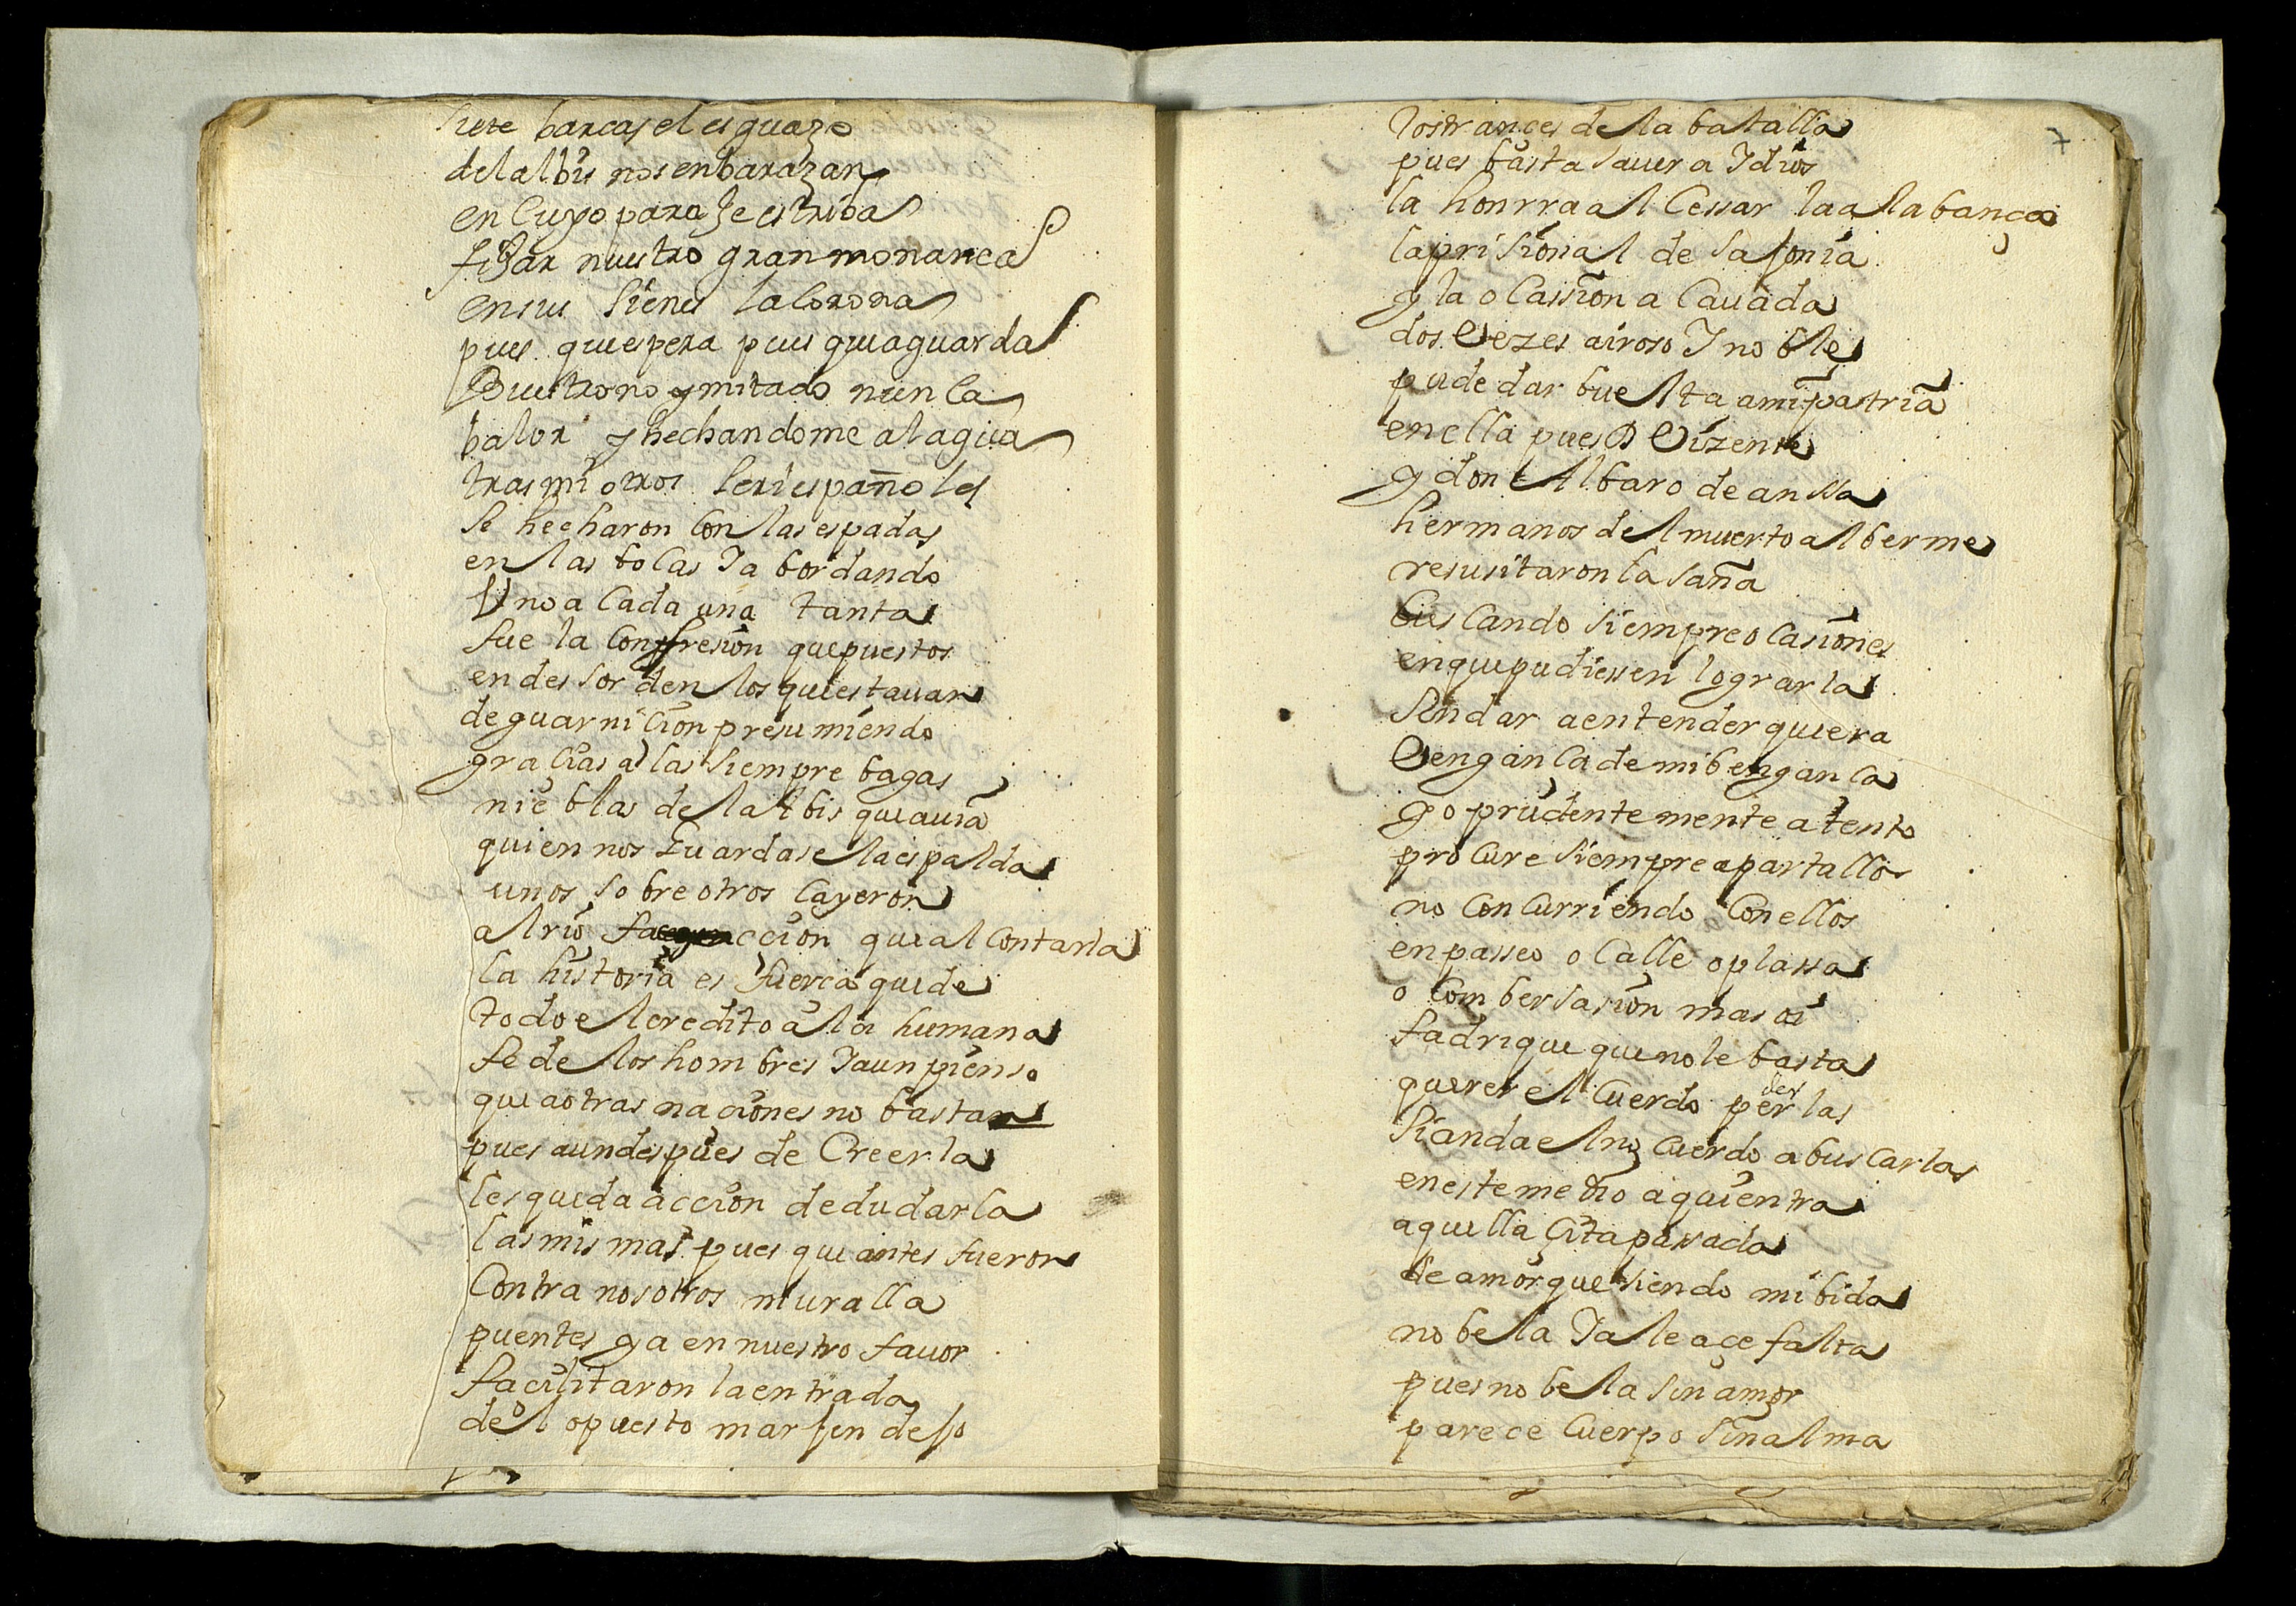 siete barcas el esguazo
del albis nos enbarazan
en cuyo paraje estriba
fijar nuestro gran monarca
en sus sienes la corona
pues que espera pues que aguarda
Buestro no ymitado nunca
balor y hechandome al agua
tras mi otros seis españoles
se hecharon con las espadas
en las bocas Ja bordando
Uno a cada una tanta
fue la confresion que puestos
en dessorden los que estauan
de guarnicion presumiendo
gracias a las siempre bagas
nieblas del Albis que auia
quien nos guardase la espalda
unos sobre otros cayeron
al rio accion que al contarla
la historia es fuerca que de
todo el credito a la humana
fe de los hombres Jaun pienso
que a otras naciones no bastan
pues aun despues de Creerla
les queda accion de dudarla
las mismas pues que antes fueron
Contra nosotros muralla
puentes ya en nuestro fauor
facilitaron la entrada
del opuesto marjen dejo
los trances de la batalla
pues basta sauer a Jdios
la honrra al Cessar la alabança
la prision al de Sajonia
y la ocassion acauada
dos Vezes airoso J noble
pude dar buelta a mi patria
en ella pues D Vizente
y don Albaro de anssa
hermanos del muerto al berme
resusitaron la saña
buscando siempre ocasiones
en que pudiessen lograrla
sin dar a entender que era
Venganca de mi benganca
yo prudentemente atento
procure siempre apartallos
no concurriendo con ellos
en passeo o calle o plassa
o combersasion mas ai
fadrique que no le basta
querer el cuerdo perderlas
si anda el no cuerdo a buscarlas
en este medio aqui entra
aquella cita passada
de amor que siendo mi bida
nobela Ja le ace falta
pues nobela sin amor
parece cuerpo sin alma
7